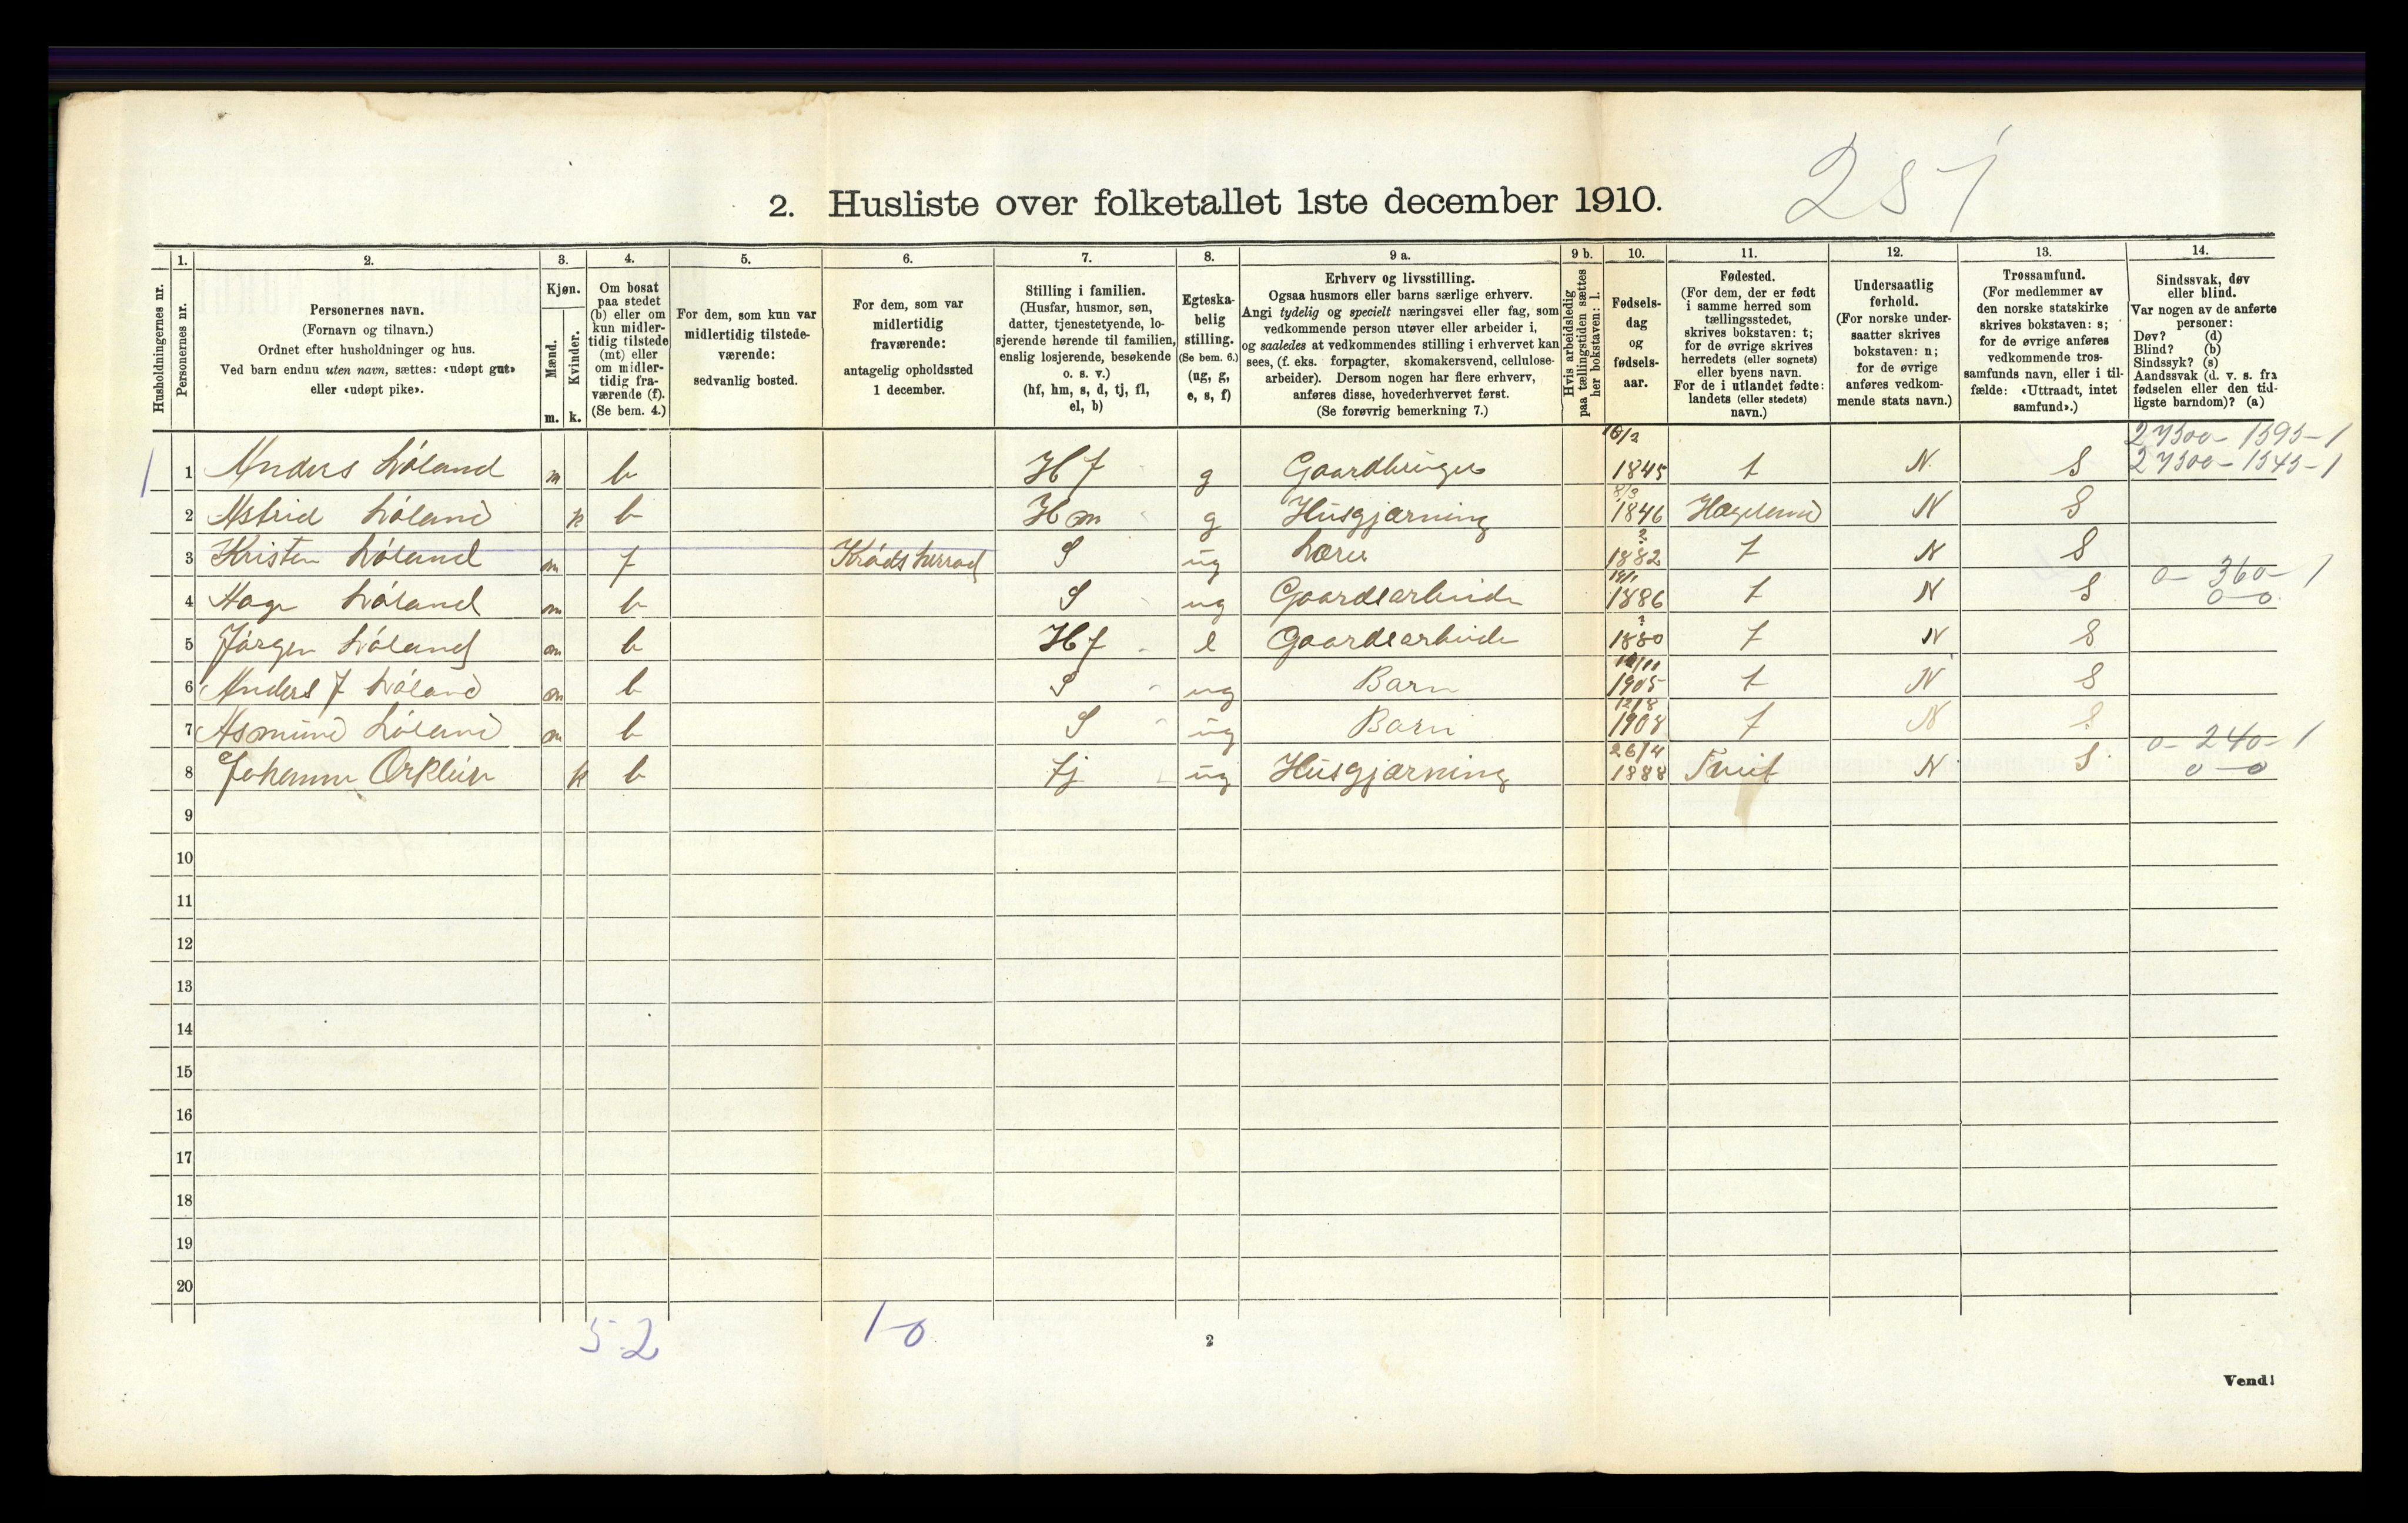 281
2. Husliste over folketallet 1ste december 1910.
Husholdningernes nr.
1. Personernes nr.
2. Personernes navn. (Fornavn og tilnavn.) Ordnet efter husholdninger og hus. Ved barn endnu uten navn, sættes: «udøpt gut» eller «udøpt pike».
3. Kjøn. Mænd. m. Kvinder. k.
4. Om bosat paa stedet (b) eller om kun midlertidig tilstede (mt) eller om midlertidig fraværende (f). (Se bem. 4.)
5. For dem, som kun var midlertidig tilstedeværende: sedvanlig bosted.
6. For dem, som var midlertidig fraværende: antagelig opholdssted 1 december.
7. Stilling i familien. (Husfar, husmor, søn, datter, tjenestetyende, losjerende hørende til familien, enslig losjerende, besøkende o. s. v.) (hf, hm, s, d, tj, fl, el, b)
8. Egteskabelig stilling. (Se bem. 6.) (ug, g, e, s, f)
9 a. Erhverv og livsstilling. Ogsaa husmors eller barns særlige erhverv. Angi tydelig og specielt næringsvei eller fag, som vedkommende person utøver eller arbeider i, og saaledes at vedkommendes stilling i erhvervet kan sees, (f. eks. forpagter, skomakersvend, cellulosearbeider). Dersom nogen har flere erhverv, anføres disse, hovederhvervet først. (Se forøvrig bemerkning 7.)
9 b. Hvis arbeidsledig paa tællingstiden sættes her bokstaven: l.
10. Fødselsdag og fødselsaar.
11. Fødested. (For dem, der er født i samme herred som tællingsstedet, skrives bokstaven: t; for de øvrige skrives herredets (eller sognets) eller byens navn. For de i utlandet fødte: landets (eller stedets) navn.)
12. Undersaatlig forhold. (For norske undersaatter skrives bokstaven: n; for de øvrige anføres vedkommende stats navn.)
13. Trossamfund. (For medlemmer av den norske statskirke skrives bokstaven: s; for de øvrige anføres vedkommende trossamfunds navn, eller i tilfælde: «Uttraadt, intet samfund».)
14. Sindssvak, døv eller blind. Var nogen av de anførte personer: Døv? (d) Blind? (b) Sindssyk? (s) Aandssvak (d. v. s. fra fødselen eller den tidligste barndom)? (a)
1 1 Anders Løland m b Hf g Gaardbruger 1845 t N S
2 Astrid Løland k b Hm g Husgjærning 8/3 1846 Hægeland N S
3 Kristen Løland m f Krødsherrad S ug Lærer ? 1882 t N S
4 Aage Løland m b S ug Gaardsarbeider 1886 t N S 0-360-1 0-0
5 Jørgen Løland m b Hf e Gaardsarbeider ? 1880 t N S
6 Anders J Løland m b S ug Barn 1905 t N S
7 Asmund Løland m b S ug Barn 12/8 1908 t N S
8 Johanne k b tj ug Husgjærning 26/4 1888 Tveit N S 0-240-1 0-0
9
10
11
12
13
14
15
16
17
18
19
20
5-2 1-0
2
Vend!